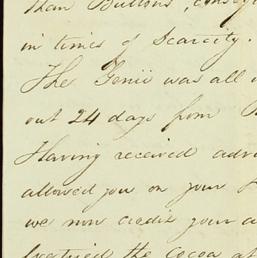 than Buttons, conseq
in times of Scarcity.
The Genii was all
out 24 days from
Having received adv
allowed you on your
we now credit your a
the Cocoa at